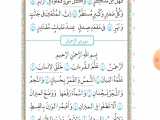 فَهَلْ مِن مُّدَّكِرٍ ۝ وَكُلُّ شَيْءٍ فَعَلُوهُ فِي الزُّبُرِ ۝
وَكُلُّ صَغِيرٍ وَكَبِيرٍ مُّسْتَطَرٌ ۝ إِنَّ الْمُتَّقِينَ فِي جَنَّاتٍ
وَنَهَرٍ ۝ فِي مَقْعَدِ صِدْقٍ عِندَ مَلِيكٍ مُّقْتَدِرٍ ۝
سورة الرحمن
بِسْمِ اللَّهِ الرَّحْمَٰنِ الرَّحِيمِ
الرَّحْمَٰنُ ۝ عَلَّمَ الْقُرْآنَ ۝ خَلَقَ الْإِنسَانَ ۝ عَلَّمَهُ
الْبَيَانَ ۝ الشَّمْسُ وَالْقَمَرُ بِحُسْبَانٍ ۝ وَالنَّجْمُ
وَالشَّجَرُ يَسْجُدَانِ ۝ وَالسَّمَاءَ رَفَعَهَا وَوَضَعَ
الْمِيزَانَ ۝ أَلَّا تَطْغَوْا فِي الْمِيزَانِ ۝